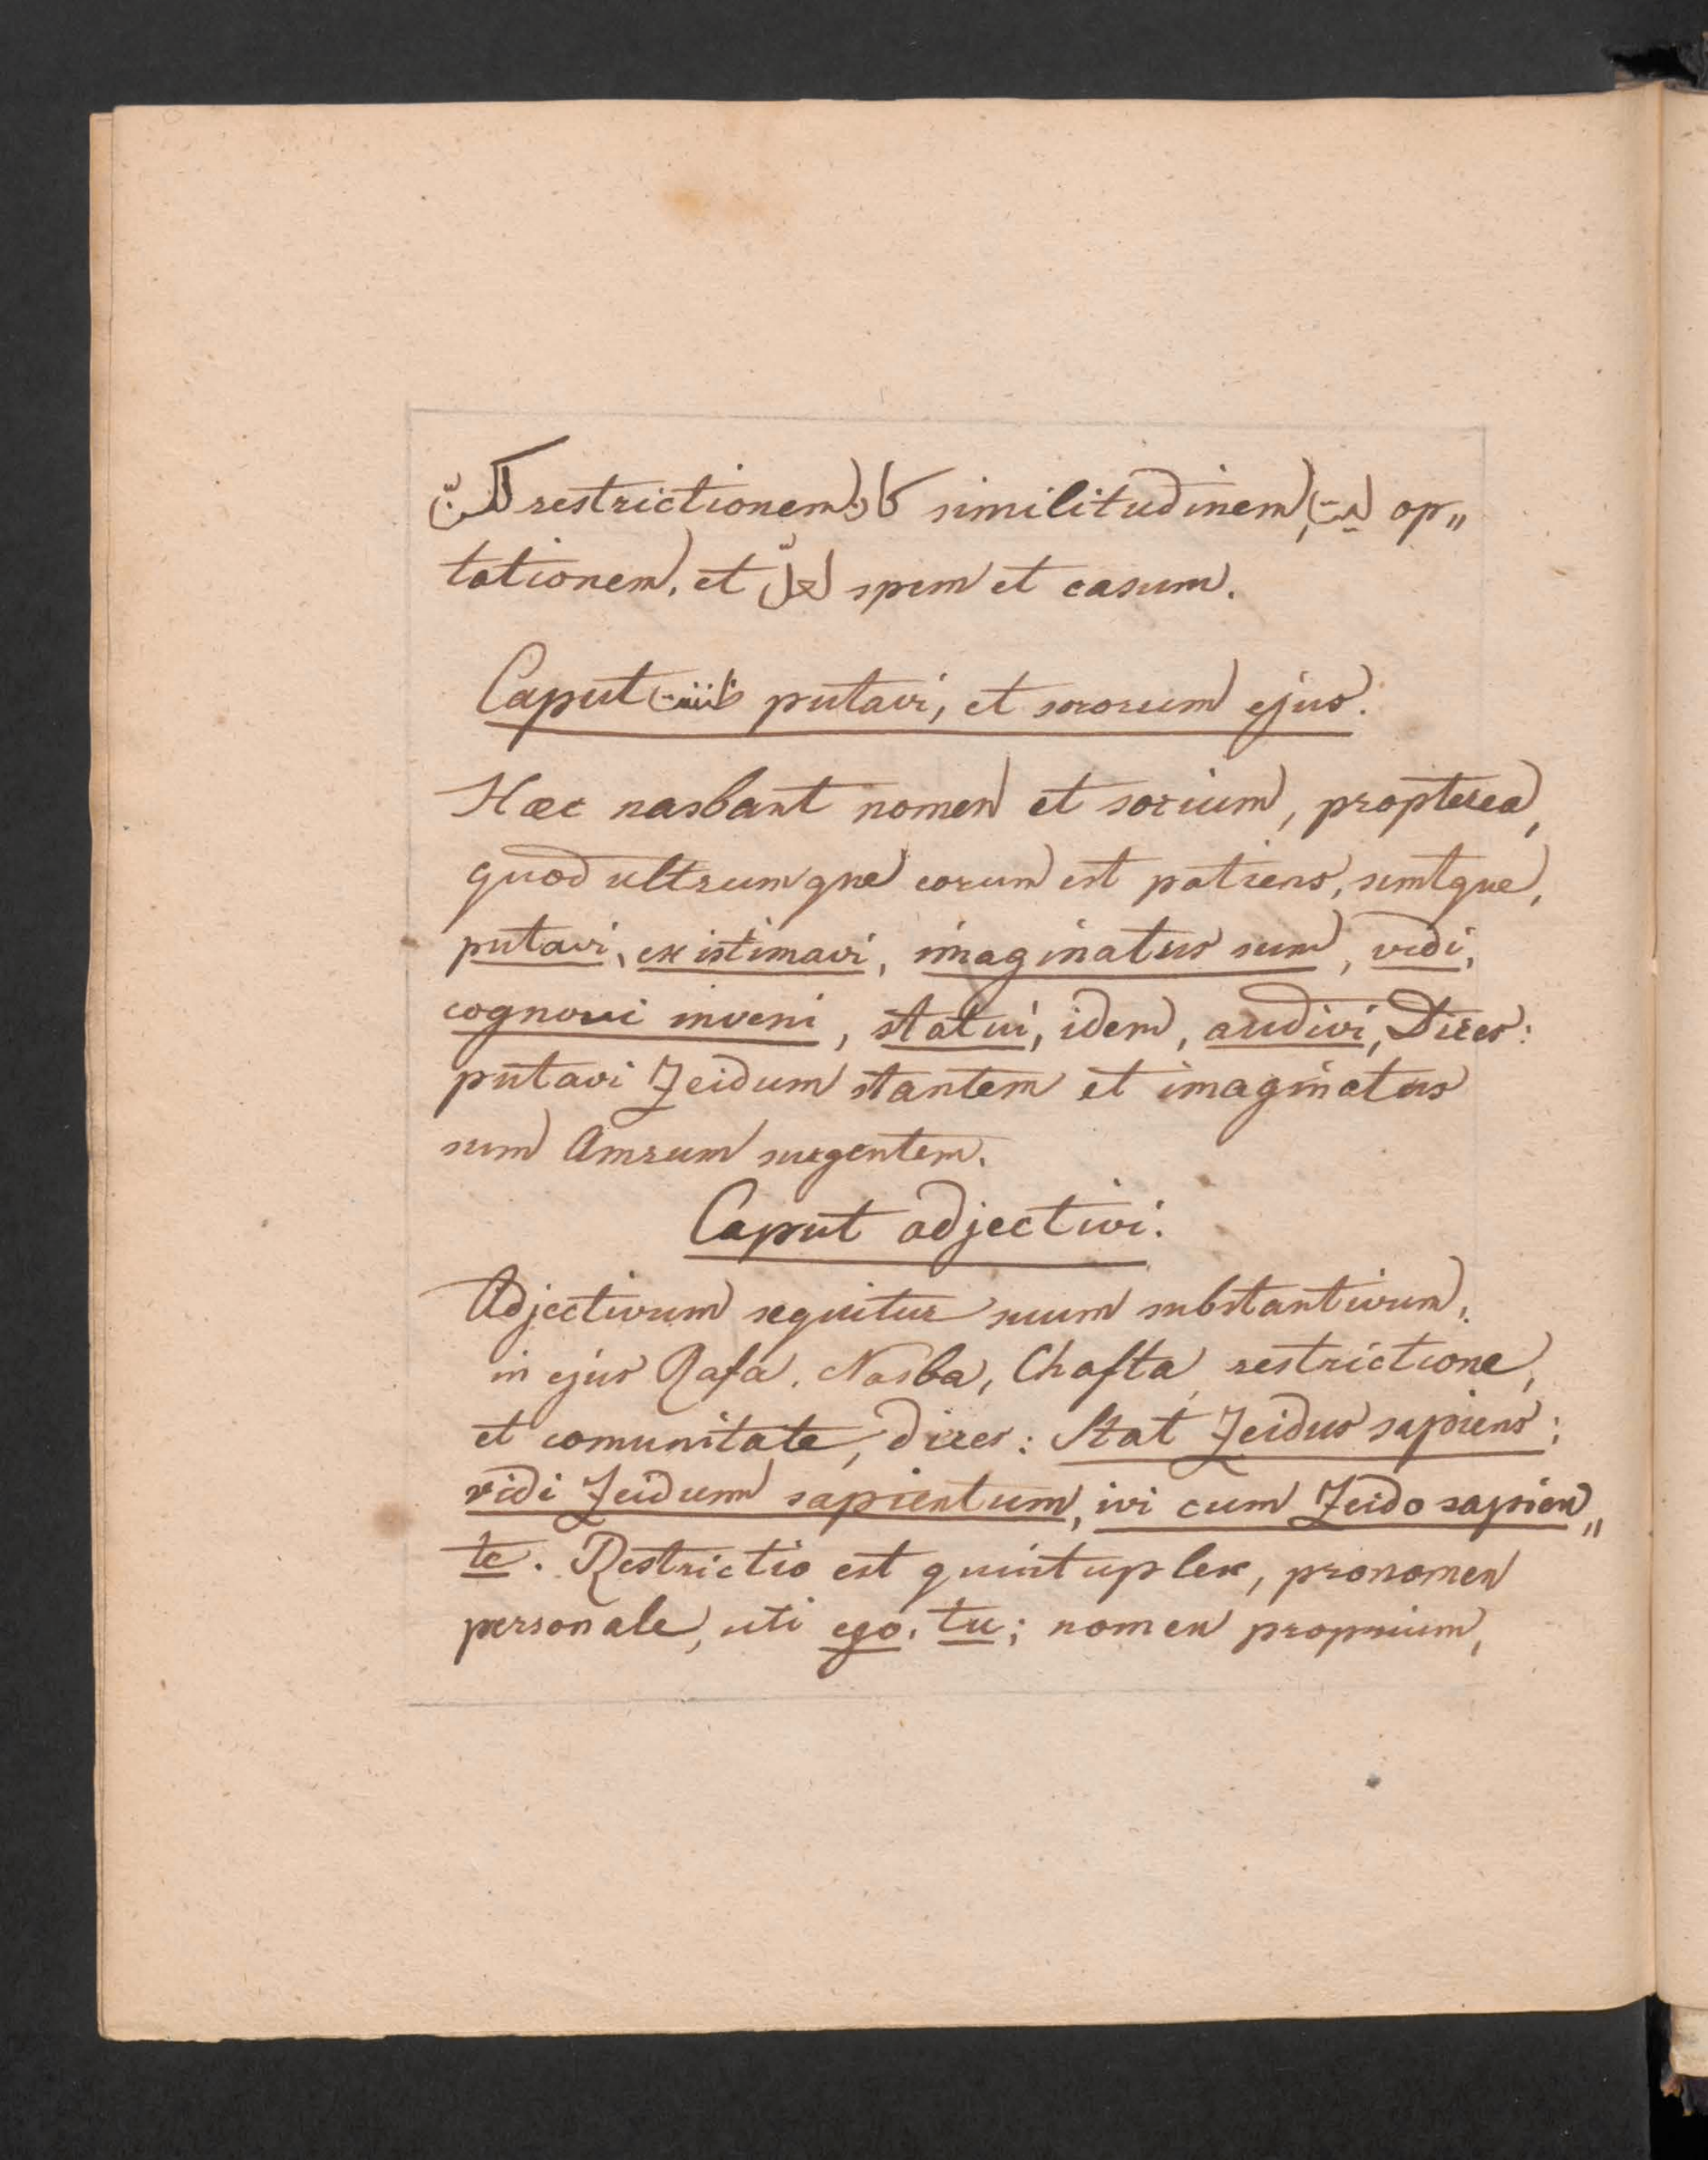 لكنّ restrictionem كان similitudinem, ليت op„
tationem, et لعلّ spem et casum.
Caput ظننت putavi, et sororum ejus.
Haec nasbant nomen et socium, propterea,
quod ultrumque eorum est patiens, suntque,
putavi, existimavi, imaginatus sum, vidi,
cognovi inveni, statui, idem, audivi, Dices:
putavi Zeidum stantem et imaginatus
sum Amrum surgentem.
Caput adjectivi.
Adjectivum sequitur suum substantivum,
in ejus Rafa, Nasba, Chafta, restrictione,
et comunitate, dices: Stat Zeidus sapiens;
vidi Zeidum sapientum, ivi cum Zeido sapien„
te. Restrictio est quintuplex, pronomen
personale, uti ego, tu; nomen proprium,